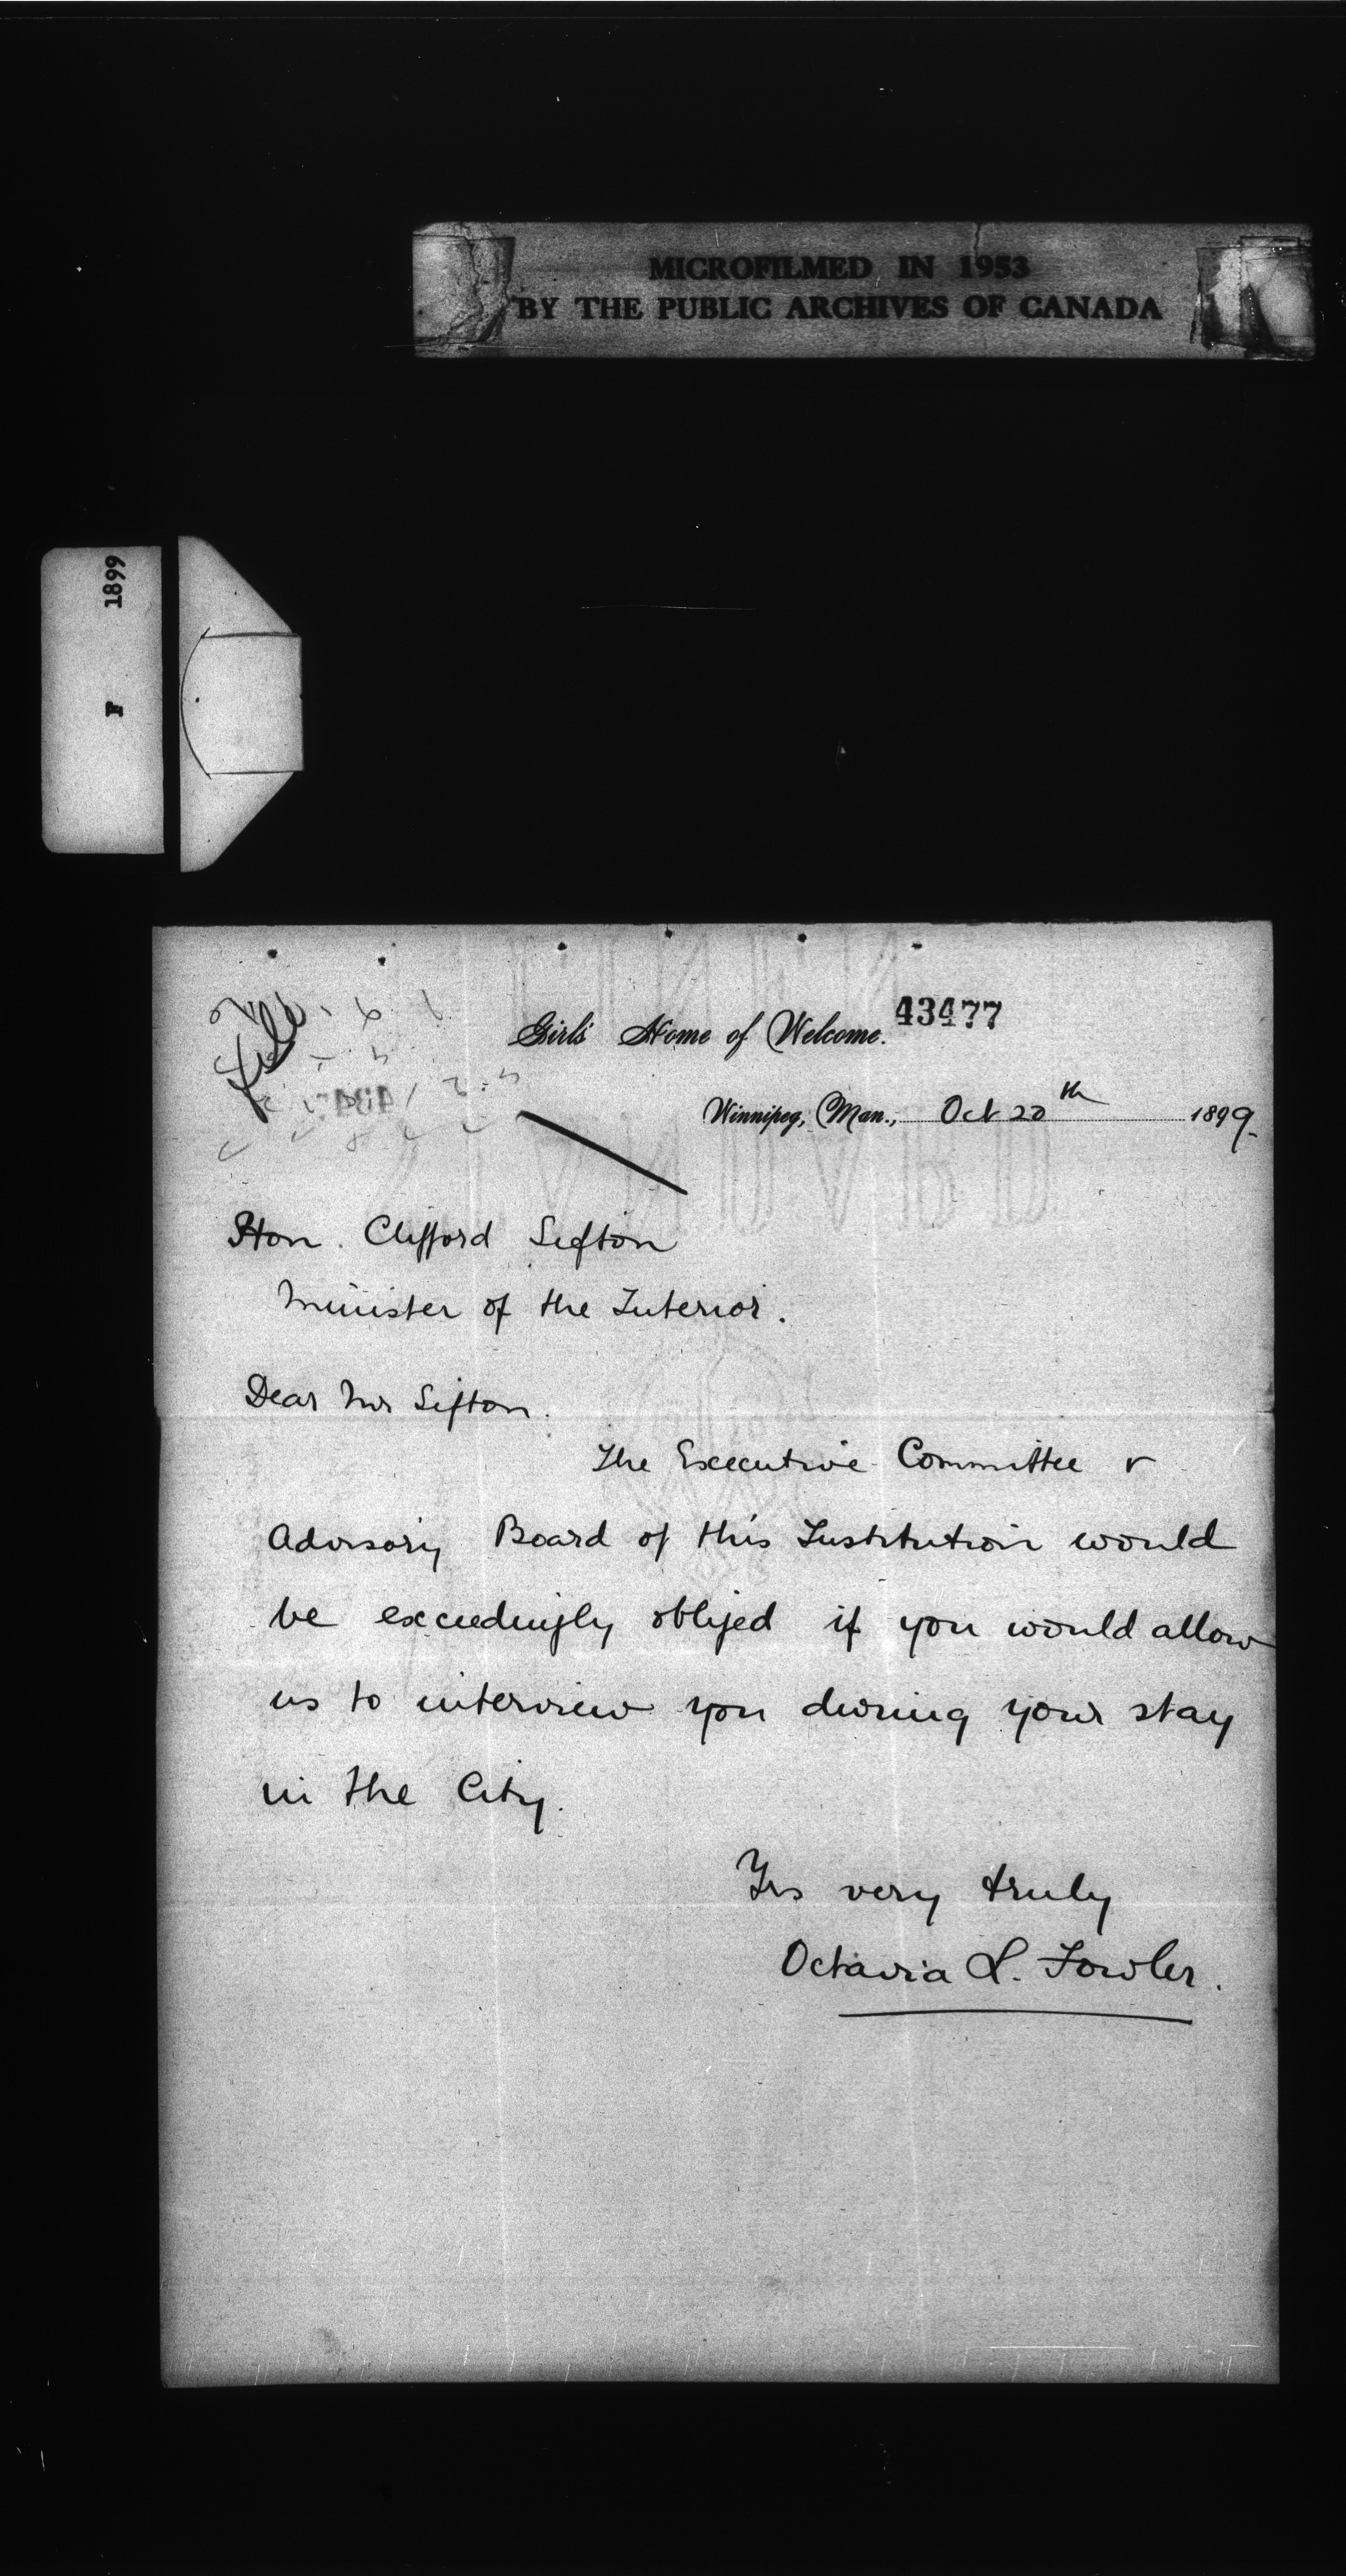 MICROFILMED IN 1953
BY THE PUBLIC ARCHIVES OF CANADA
F 1899
43477
File
Girls' Home of Welcome.
Winnipeg, Man., Oct 20th 1899.
Hon. Clifford Sifton
Minister of the Interior.
Dear Mr Sifton.
The Executive Committee &
Advisory Board of this Institution would
be exceedingly obliged if you would allow
us to interview you during your stay
in the City.
Yrs very truly
Octavia L. Fowler.